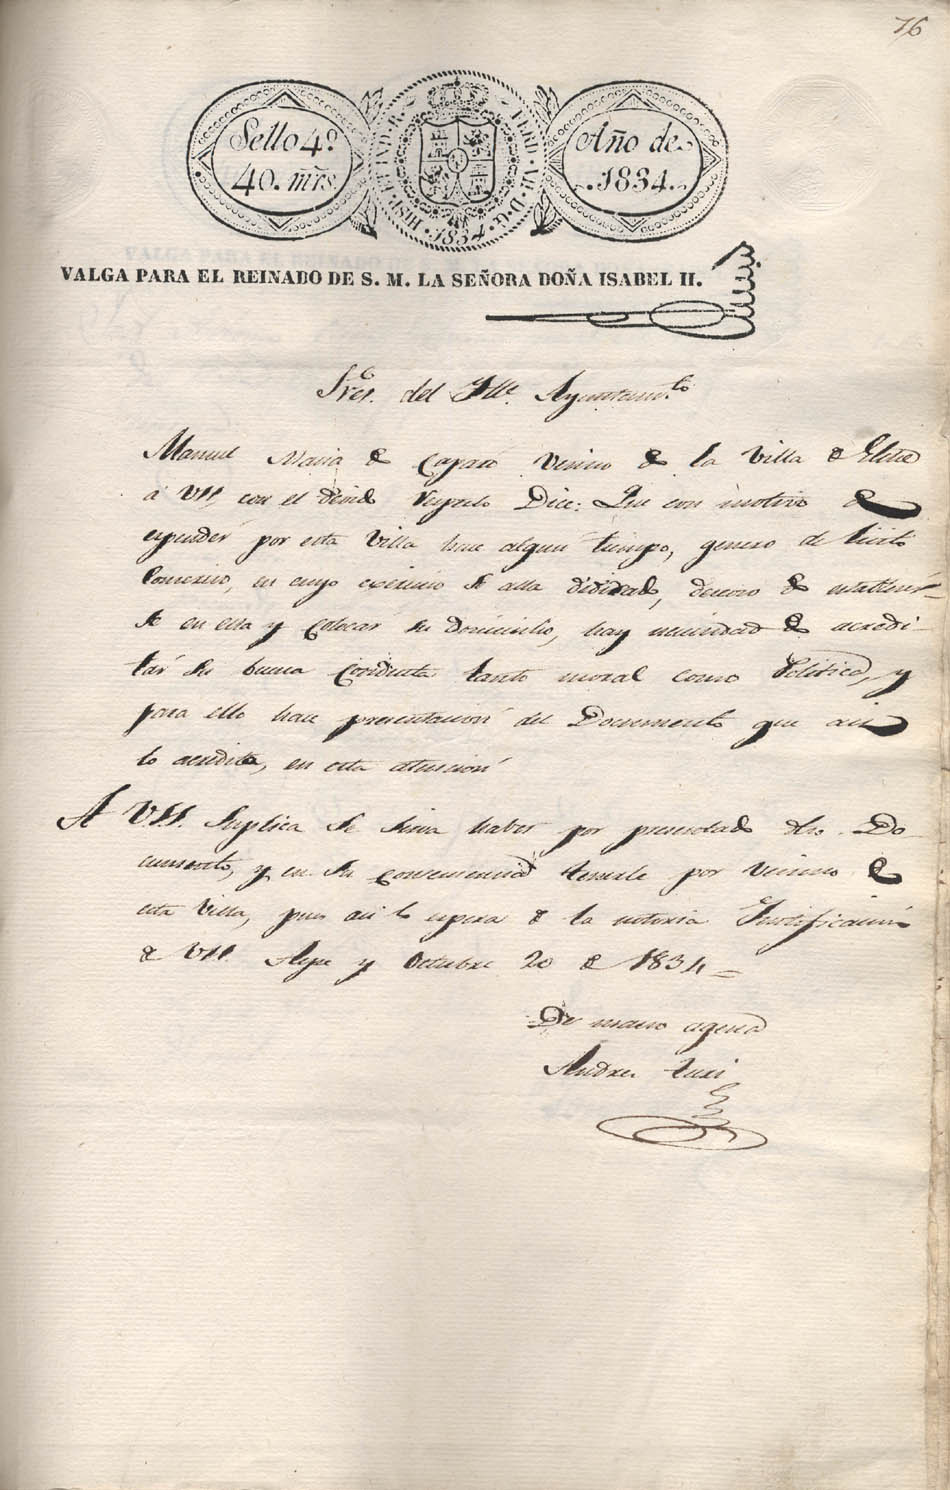 76
Sello 4º
40. mrs.
HISP. ET IND. R. FERD. VII. D. G. 1834
Año de
1834.
VALGA PARA EL REINADO DE S. M. LA SEÑORA DOÑA ISABEL II.
Sres. del Ille. Ayuntamto
Manuel Maria de vecino de la Villa de Elche
a VSS, con el devido respeto Dice: Que con motivo de
espender por esta Villa hace algun tiempo, genero de licito
Comercio, en cuyo exercicio se alla dedicado, deseoso de establecer-
se en ella y colocar su domicilio, hay necesidad de acredi-
tar su buena Conducta tanto moral como Politica, y
para ello hace presentacion del Documento que asi
lo acredita, en esta atencion
A VSS. Suplica se sirva haber por presentado dho. Do-
cumento, y en su consecuencia tenerle por Vecino de
esta Villa, pues asi lo espera de la notoria Justificacion
de VSS. Aspe y Octubre 20 de 1834=
De mano agena
Andres